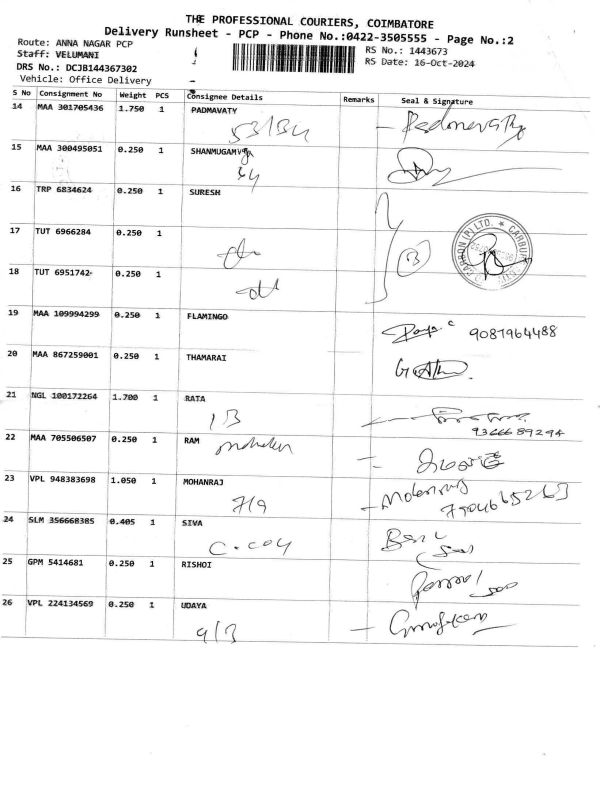 THE PROFESSIONAL COURIERS, COIMBATORE
Delivery Runsheet - PCP - Phone No.:0422-3505555 - Page No.:2
Route: ANNA NAGAR PCP
RS No.: 1443673
Staff: VELUMANI
RS Date: 16-Oct-2024
DRS No.: DCJB144367302
Vehicle: Office Delivery
S No Consignment No Weight PCS Consignee Details Remarks Seal & Signature
14 MAA 301705436 1.750 1 PADMAVATY
53/34
15 MAA 300495051 0.250 1 SHANMUGAM
16 TRP 6834624 0.250 1 SURESH
17 TUT 6966284 0.250 1
18 TUT 6951742 0.250 1
19 MAA 109994299 0.250 1 FLAMINGO
9087964488
20 MAA 867259001 0.250 1 THAMARAI
21 NGL 100172264 1.700 1 RATA
13
9366689294
22 MAA 705506507 0.250 1 RAM
23 VPL 948383698 1.050 1 MOHANRAJ
7/9 Mohanraj
7904665263
24 SLM 356668385 0.405 1 SIVA
25 GPM 5414681 0.250 1 RISHOI
26 VPL 224134569 0.250 1 UDAYA
9/3